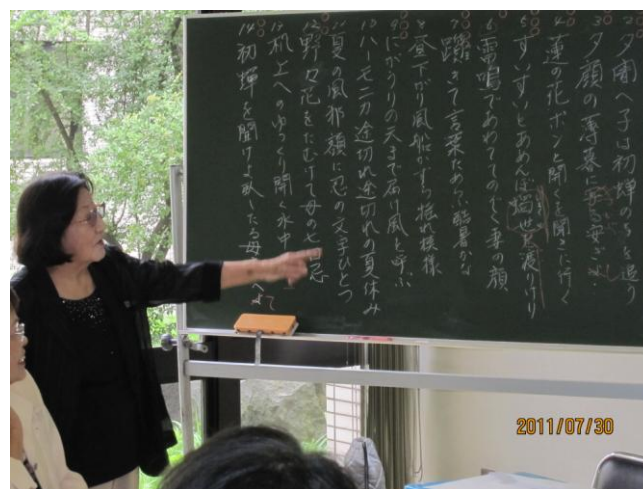 2 夕闇へ子は初蝉の声を追う
3 夕顔の薄暮に
4 蓮の花ポンと開く聞きに行く
5 すいすいとあめんぼ 世 渡りけり
6 雷鳴であわててのぞく妻の顔
7 躓きて言葉ためらふ酷暑かな
8 昼下がり風鈴 揺れ模様
9 にがうりの天まで届け風と呼ぶ
10 ハーモニカ途切れ途切れの夏休み
11 夏の風邪額に忍の文字ひとつ
12 野の花をたむけて母の 忌
13 机上へのゆっくり開く水中
14 初蝉を聞けよ 母
2011/07/30